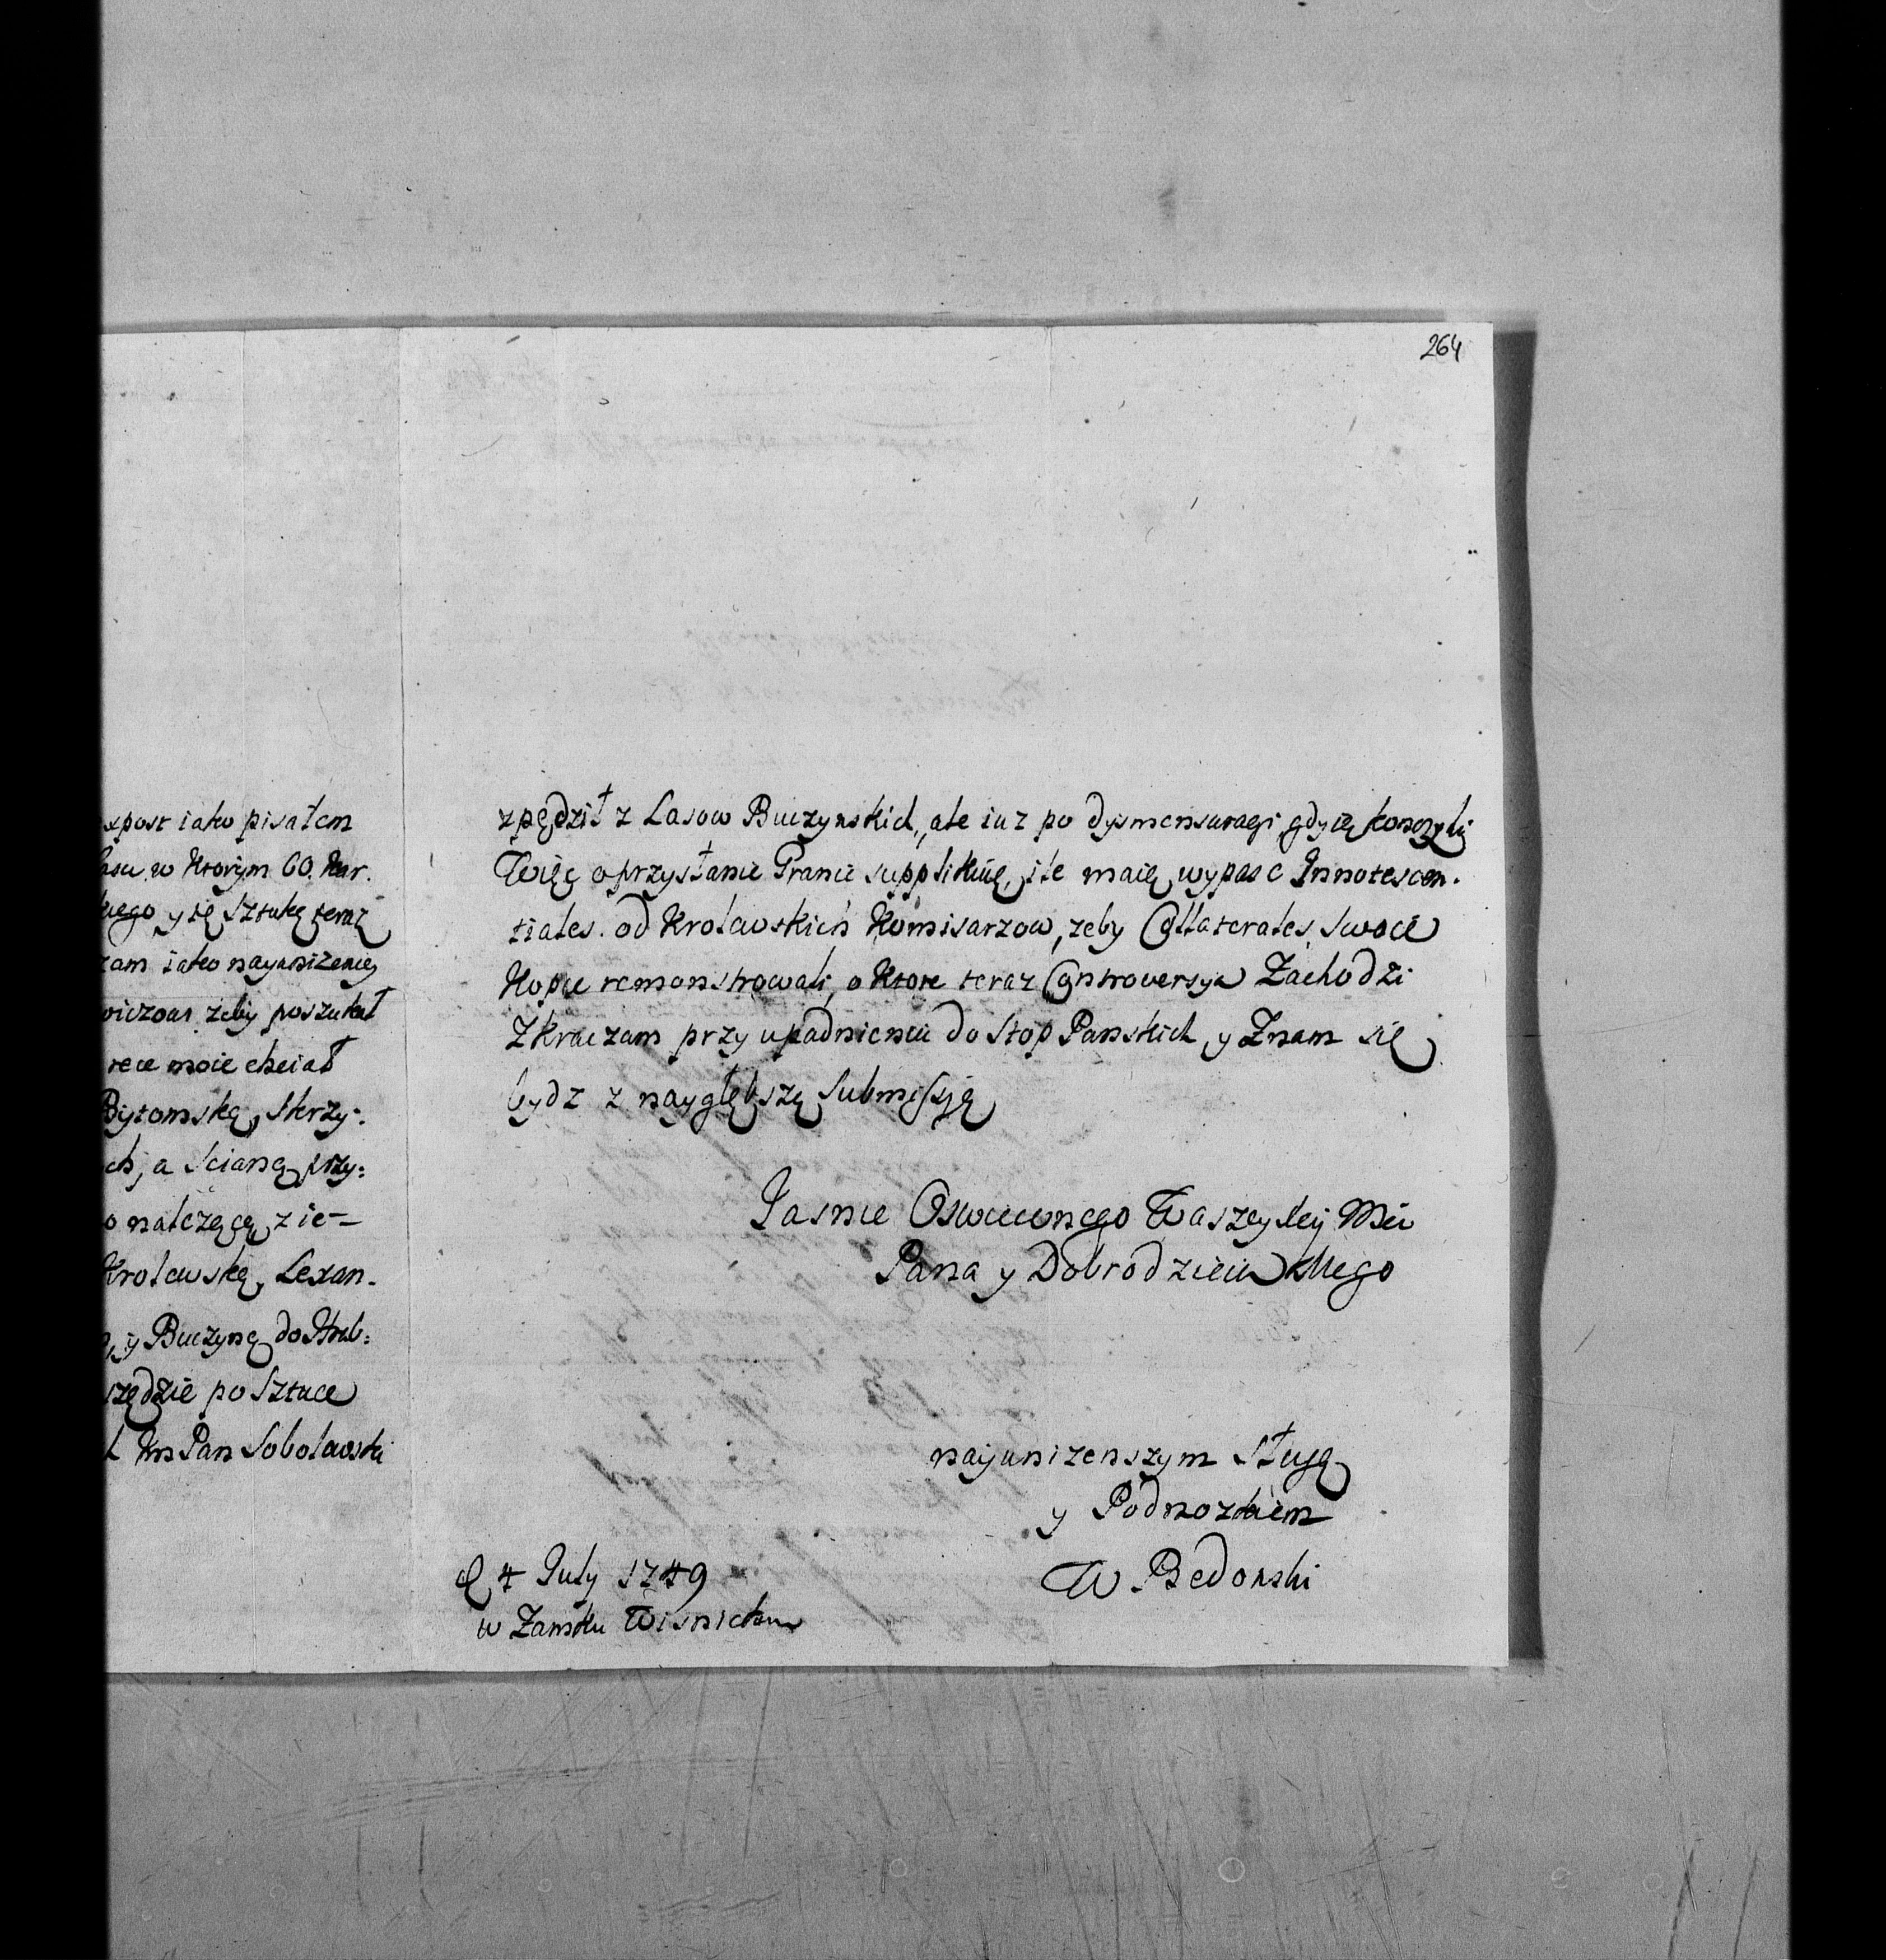 264
xpost iako pisałem
lasu w ktorym 60. kar.
kiego y tę Sztukę teraz
zam iako nayunizeniey
wiczowi zeby poszukał
rece moie chciał
Bytomską, Skrzy:
ch, a Scianą przy:
o nalezącą z ie-
Krolewską, Lexan-
y Buczyną do Hreb:
szędzie po Sztuce
Im Pan Sobolewski
zpędził z Lasow Buczynskich, ale iuz po dysmensuragi gdy ią konczyli
Więc o przysłanie Granic supplikuię, ile maią wypasc Innotescen-
tiales od Krolewskich Komisarzow, zeby Collaterales swoie
Kopce remonstrowali, o ktore teraz Controversya Zachodzi
Zkraczam przy upadnieniu do Stop Panskich y Znam się
bydz z naygłębszą Submissją
Jasnie Oswieconego Waszey Xcey Mci
Pana y Dobrodzieia Mego
nayunizenszym Sługą
y Podnozkiem
W Bedonski
d 4 July 1749
w Zamku Wisnickim